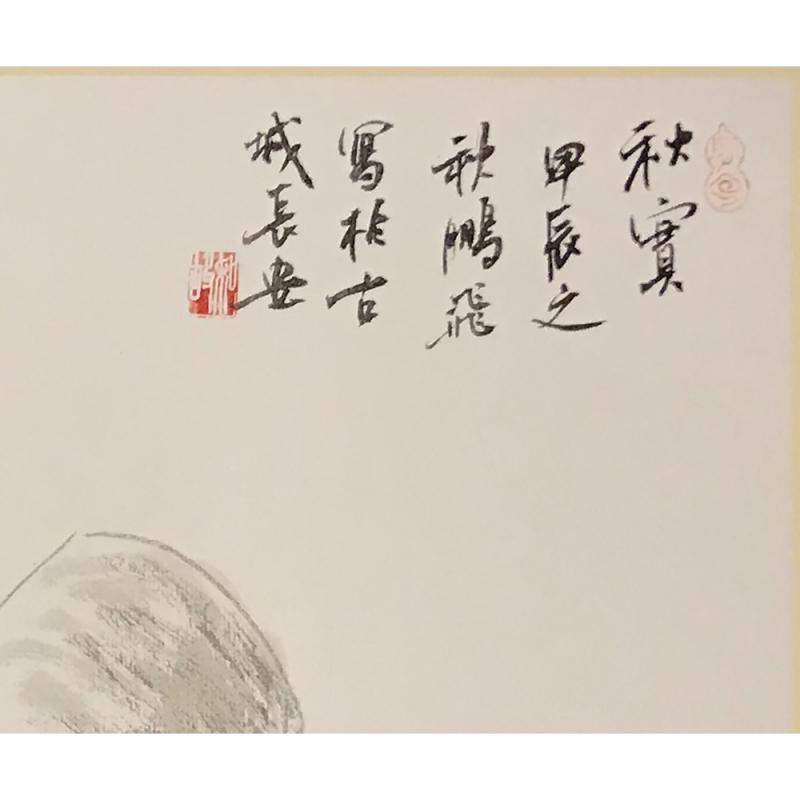 秋實
甲辰之
秋鵬飛
寫於古
城長安